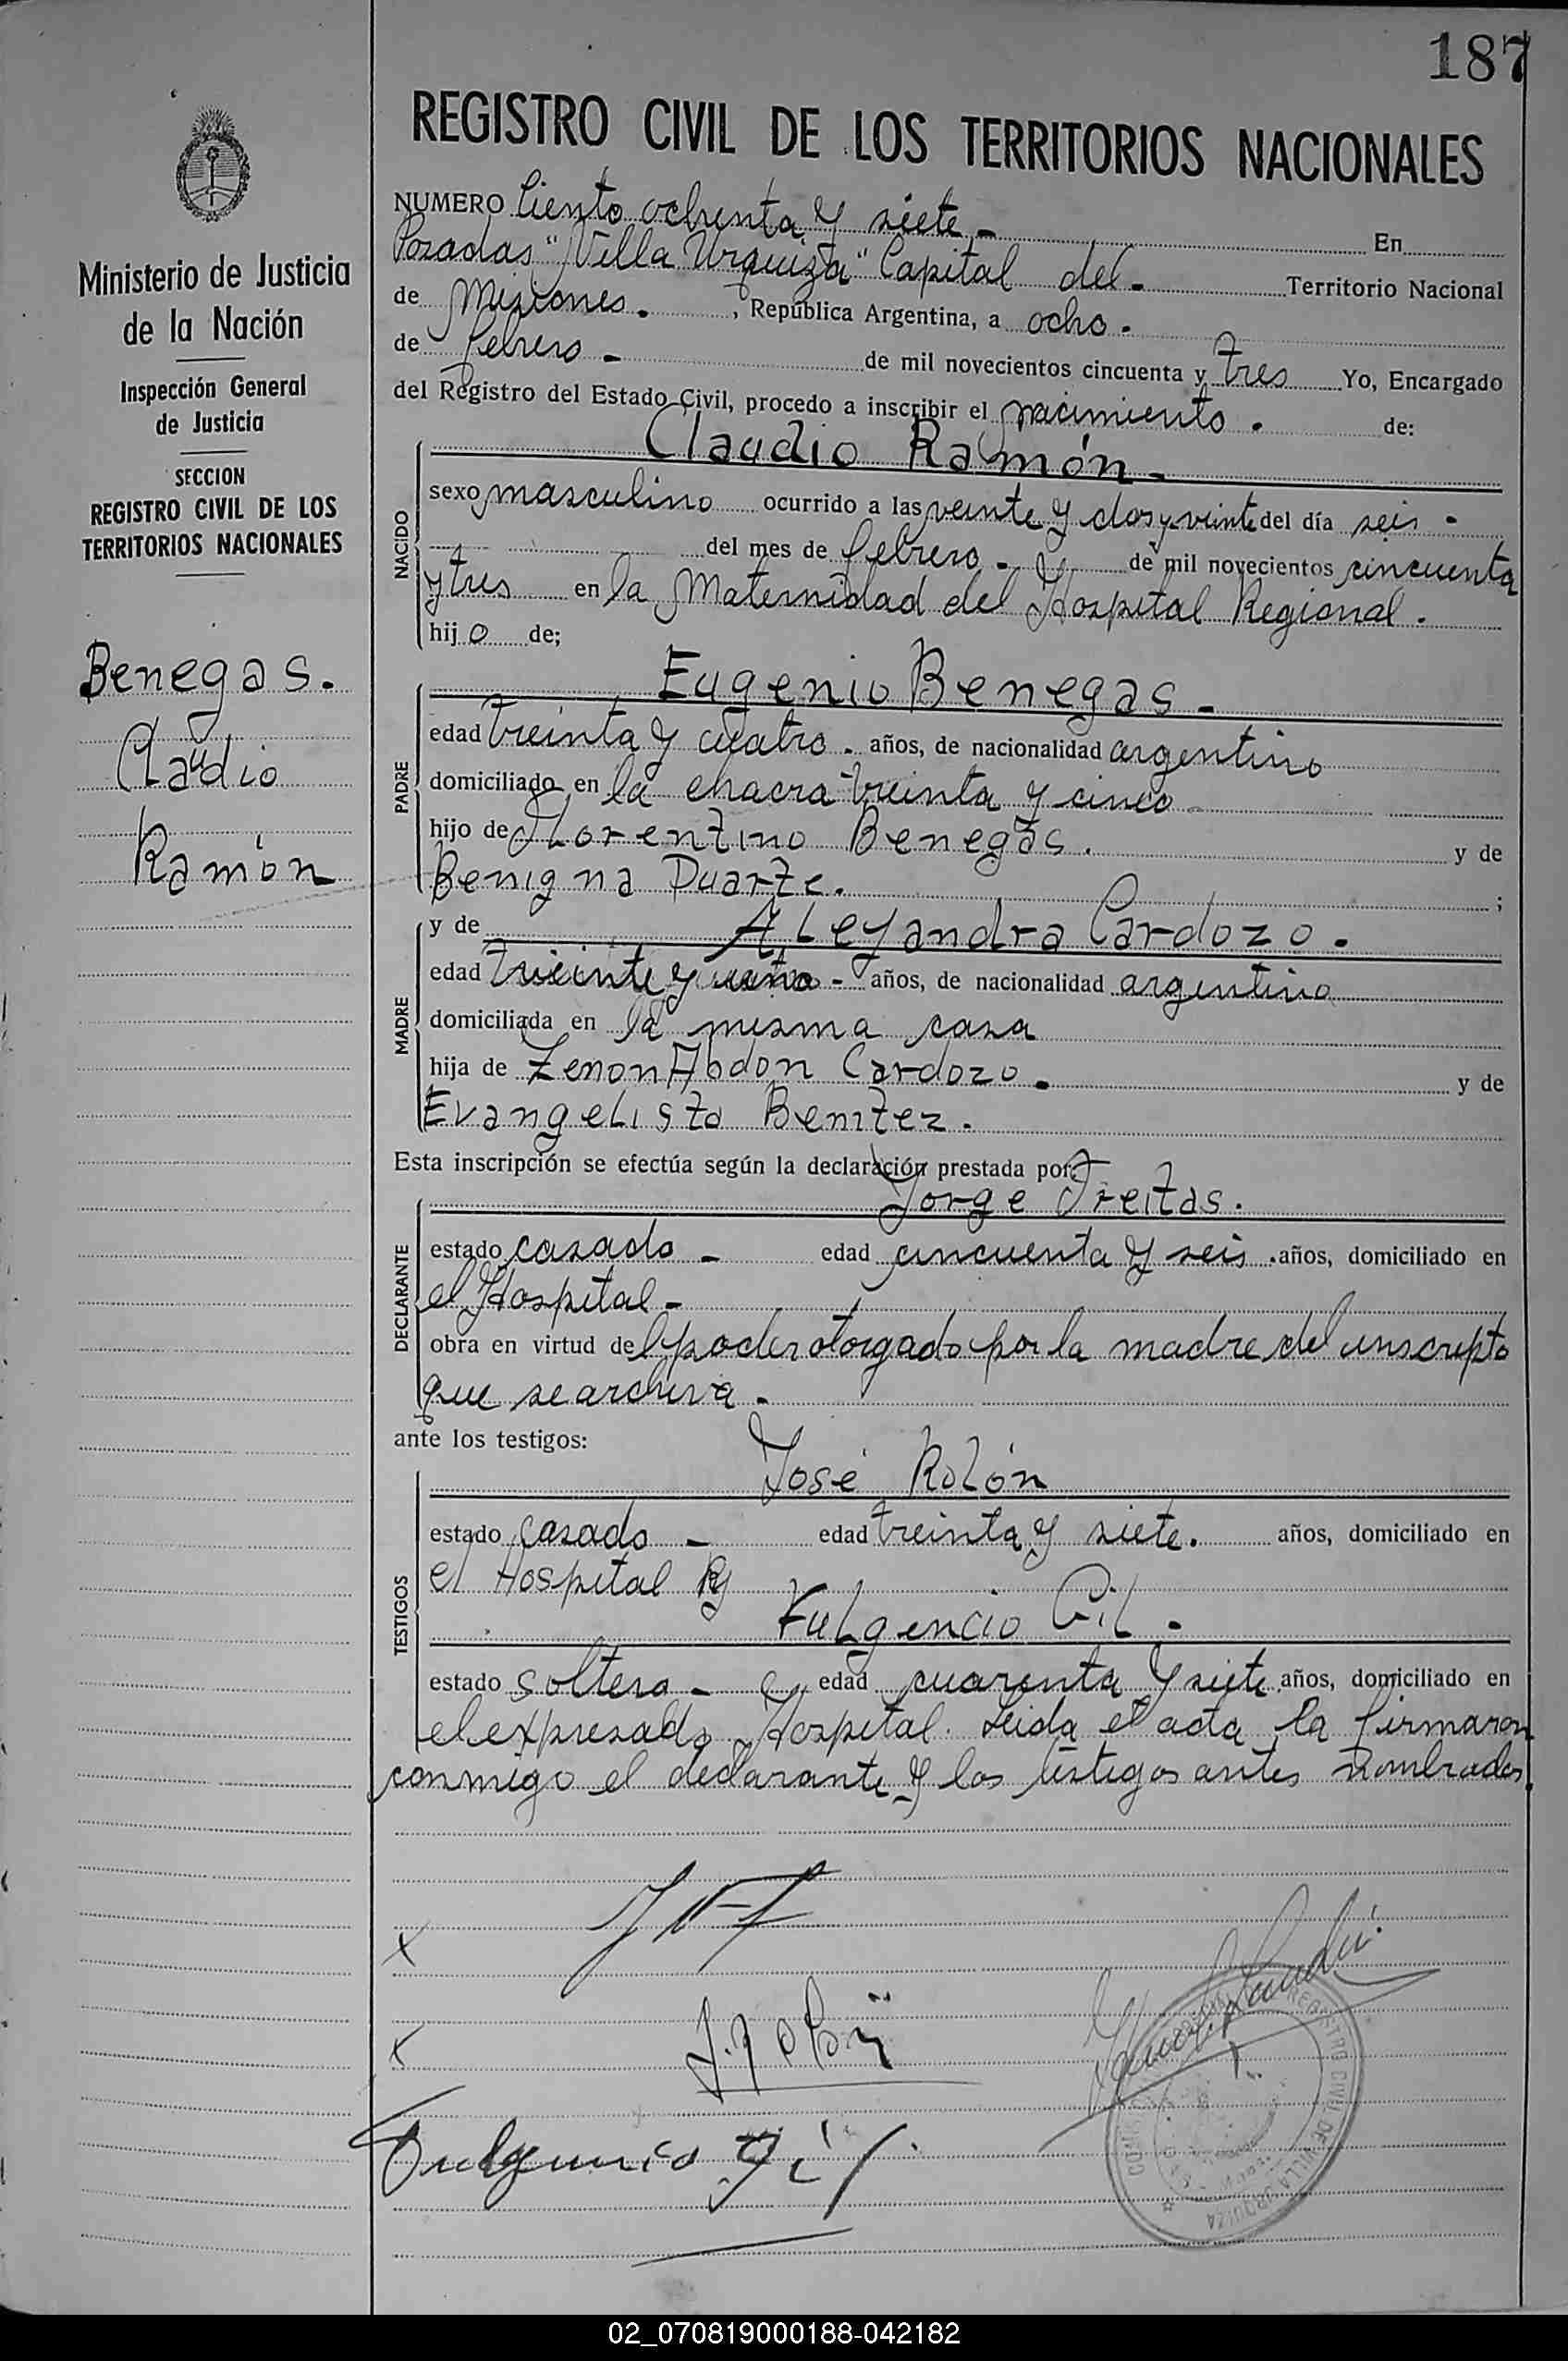 187
REGISTRO CIVIL DE LOS TERRITORIOS NACIONALES
Ministerio de Justicia
de la Nación
Inspección General
de Justicia
SECCION
REGISTRO CIVIL DE LOS
TERRITORIOS NACIONALES
Benegas.
Claudio
Ramón
NUMERO Ciento ochenta y siete - En
Posadas "Villa Urquiza" Capital del - Territorio Nacional
de Misiones. , República Argentina, a ocho -
de febrero - de mil novecientos cincuenta y tres Yo, Encargado
del Registro del Estado Civil, procedo a inscribir el nacimiento. de:
Claudio Ramón -
NACIDO
sexo masculino ocurrido a las veinte y dos y veinte del día seis -
del mes de febrero - de mil novecientos cincuenta
y tres en la Maternidad del Hospital Regional.
hijo de;
Eugenio Benegas -
PADRE
edad treinta y cuatro. años, de nacionalidad argentino
domiciliado en la chacra treinta y cinco
hijo de Florentino Benegas. y de
Benigna Duarte. ;
y de Aleyandra Cardozo.
MADRE
edad años, de nacionalidad argentina
domiciliada en la misma casa
hija de Zenon Abdon Cardozo. y de
Evangelista Benitez.
Esta inscripción se efectúa según la declaración prestada por:
Jorge Freitas.
DECLARANTE
estado casado - edad cincuenta y seis. años, domiciliado en
el Hospital -
obra en virtud del poder otorgado por la madre del inscripto
que se archiva -
ante los testigos:
José Rolón
TESTIGOS
estado casado - edad treinta y siete. años, domiciliado en
el Hospital
Fulgencio Gil.
estado soltero - edad cuarenta y siete años, domiciliado en
el expresado Hospital. Leida el acta la firmaron
conmigo el declarante y los testigos antes nombrados.
x
x
Fulgencio Gil.
REGISTRO CIVIL DE VILLA URQUIZA
02_070819000188-042182